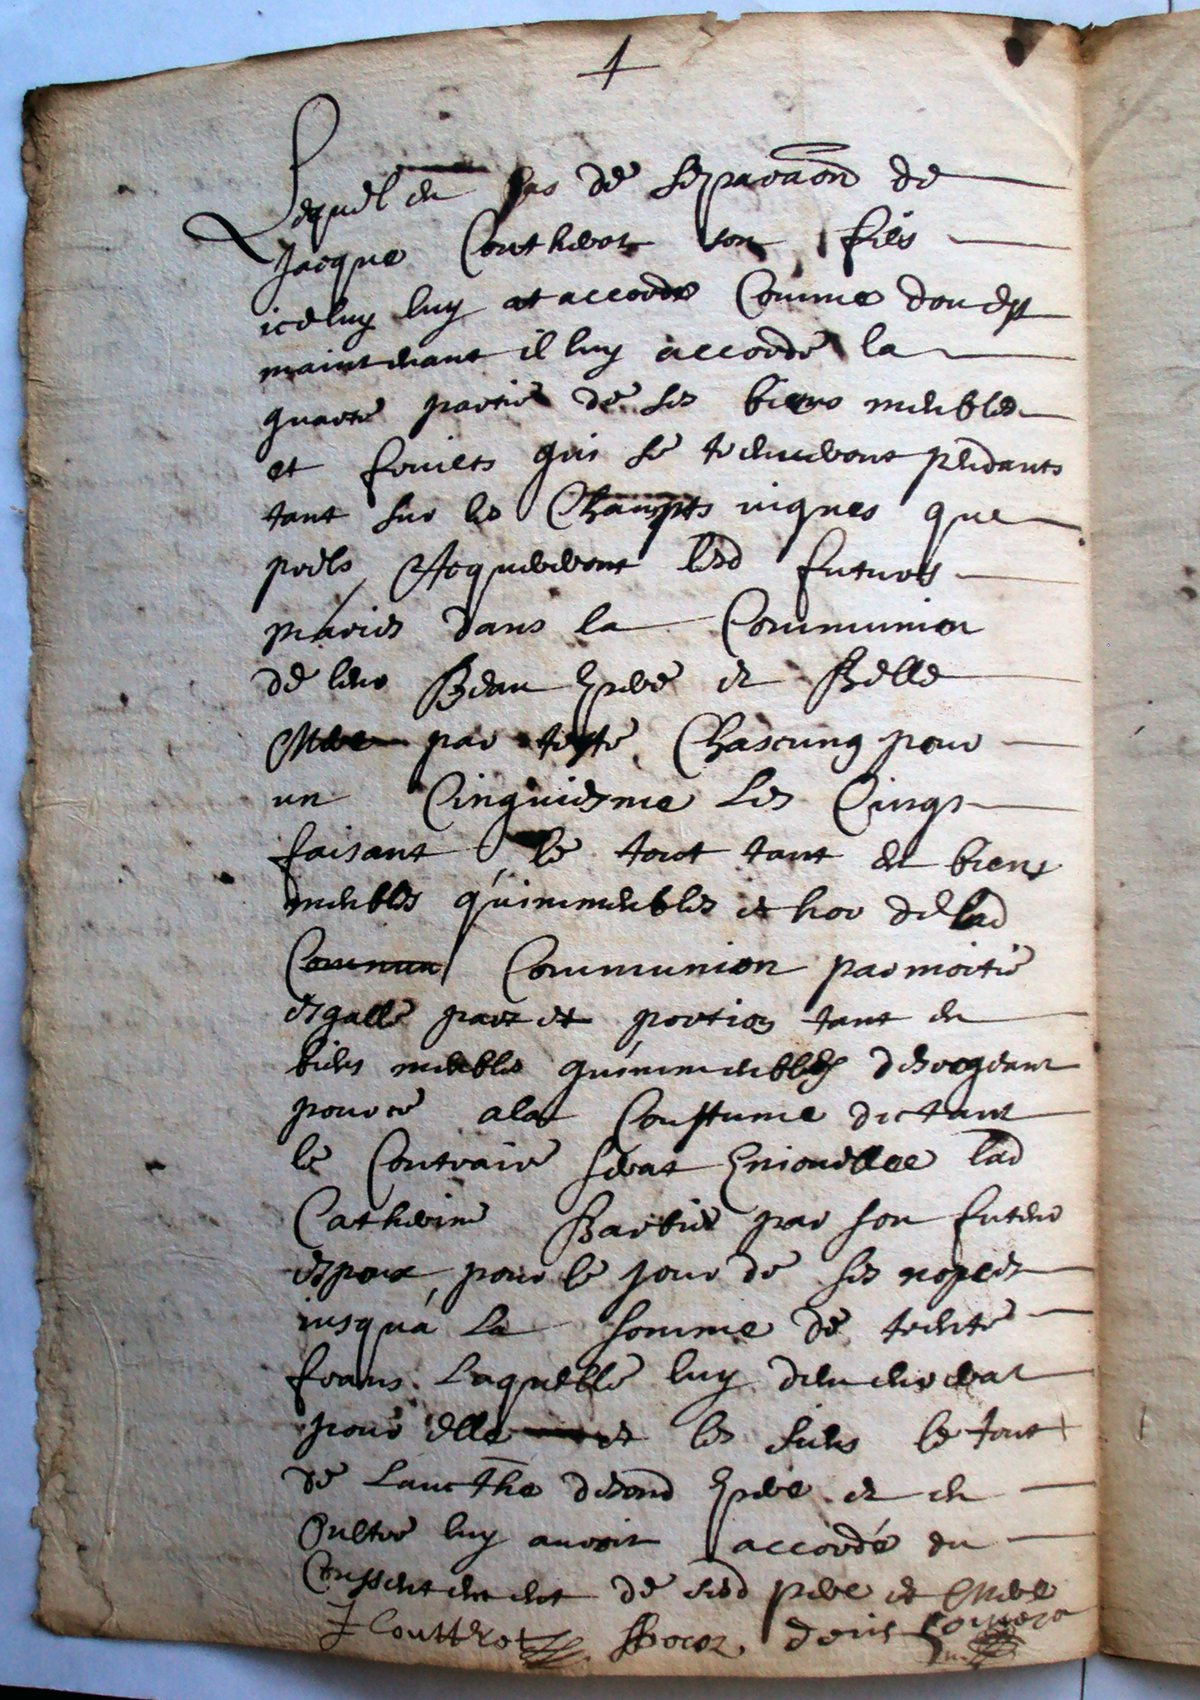 Lequel en cas de separaon de
Jacque Coutherot son fils
iceluy luy at accorde Comme don est
maintenant il luy accorde la
quarte partie de ses biens meubles
et fruicts qui se treuveront pendants
tant sur les Champs vignes que
prels Acquereront lesd futurs
mariez dans la Communion
de leur Beau pere et Belle
Mere par teste Chascung pour
un Cinquiesme Les Cinqs
faisant le tout tant en biens
meubles qu'immeubles et hor de lad
Commun Communion par moitie
esgalle part et portion tant en
biens meubles qu'immeubles desrogeant
pour ce a la Coustume dictant
le Contraire serat Enjouellee lad
Catherine Barbier par son futeur
espoux, pour le jour de ses nopces
jusqu'a La somme de trente
frans. Laquelle luy demeurerat
pour elle et les siens le tout
de Laucthe desond pere et en
Oultre luy auroit accordé du
Consentement de sesd pere et Mere
J Couttrot denis